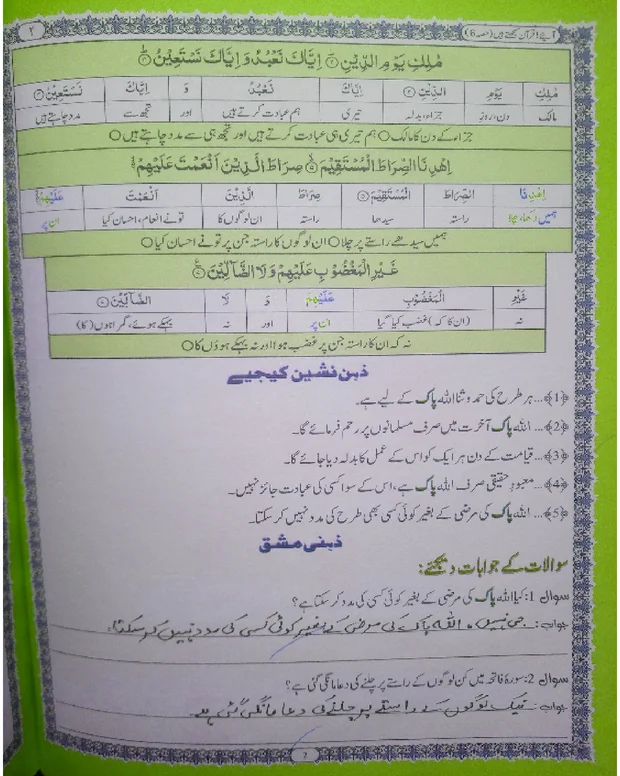 آیئے قرآن سمجھتے ہیں (حصہ 6)
۲
مٰلِكِ يَوْمِ الدِّيْنِ ۝ اِيَّاكَ نَعْبُدُ وَ اِيَّاكَ نَسْتَعِيْنُ ۝
مٰلِكِ يَوْمِ الدِّيْنِ ۝ اِيَّاكَ نَعْبُدُ وَ اِيَّاكَ نَسْتَعِيْنُ ۝
مالک دن، روز جزاء، بدلہ تیری ہم عبادت کرتے ہیں اور تجھ سے مدد چاہتے ہیں
جزاء کے دن کا مالک ○ ہم تیری ہی عبادت کرتے ہیں اور تجھ ہی سے مدد چاہتے ہیں ○
اِهْدِنَا الصِّرَاطَ الْمُسْتَقِيْمَ ۝ صِرَاطَ الَّذِيْنَ اَنْعَمْتَ عَلَيْهِمْ
اِهْدِنَا الصِّرَاطَ الْمُسْتَقِيْمَ ۝ صِرَاطَ الَّذِيْنَ اَنْعَمْتَ عَلَيْهِمْ
ہمیں دکھا، چلا راستہ سیدھا راستہ ان لوگوں کا تونے انعام، احسان کیا ان پر
ہمیں سیدھے راستے پر چلا ○ ان لوگوں کا راستہ جن پر تونے احسان کیا ○
غَيْرِ الْمَغْضُوْبِ عَلَيْهِمْ وَ لَا الضَّآلِّيْنَ ۝
غَيْرِ الْمَغْضُوْبِ عَلَيْهِمْ وَ لَا الضَّآلِّيْنَ ۝
نہ (ان کا کہ) غضب کیا گیا ان پر اور نہ بہکے ہوئے، گمراہوں (کا)
نہ کہ ان کا راستہ جن پر غضب ہوا اور نہ بہکے ہوؤں کا ○
ذہن نشین کیجیے
﴿1﴾... ہر طرح کی حمد و ثنا اللہ پاک کے لیے ہے۔
﴿2﴾... اللہ پاک آخرت میں صرف مسلمانوں پر رحم فرمائے گا۔
﴿3﴾... قیامت کے دن ہر ایک کو اس کے عمل کا بدلہ دیا جائے گا۔
﴿4﴾... معبودِ حقیقی صرف اللہ پاک ہے، اس کے سوا کسی کی عبادت جائز نہیں۔
﴿5﴾... اللہ پاک کی مرضی کے بغیر کوئی کسی بھی طرح کی مدد نہیں کر سکتا۔
ذہنی مشق
سوالات کے جوابات دیجئے:
سوال 1: کیا اللہ پاک کی مرضی کے بغیر کوئی کسی کی مدد کر سکتا ہے؟
جواب: جی نہیں، اللہ پاک کی مرضی کے بغیر کوئی کسی کی مدد نہیں کر سکتا۔
سوال 2: سورۂ فاتحہ میں کن لوگوں کے راستے پر چلنے کی دعا مانگی گئی ہے؟
جواب: نیک لوگوں کے راستے پر چلنے کی دعا مانگی گئی ہے